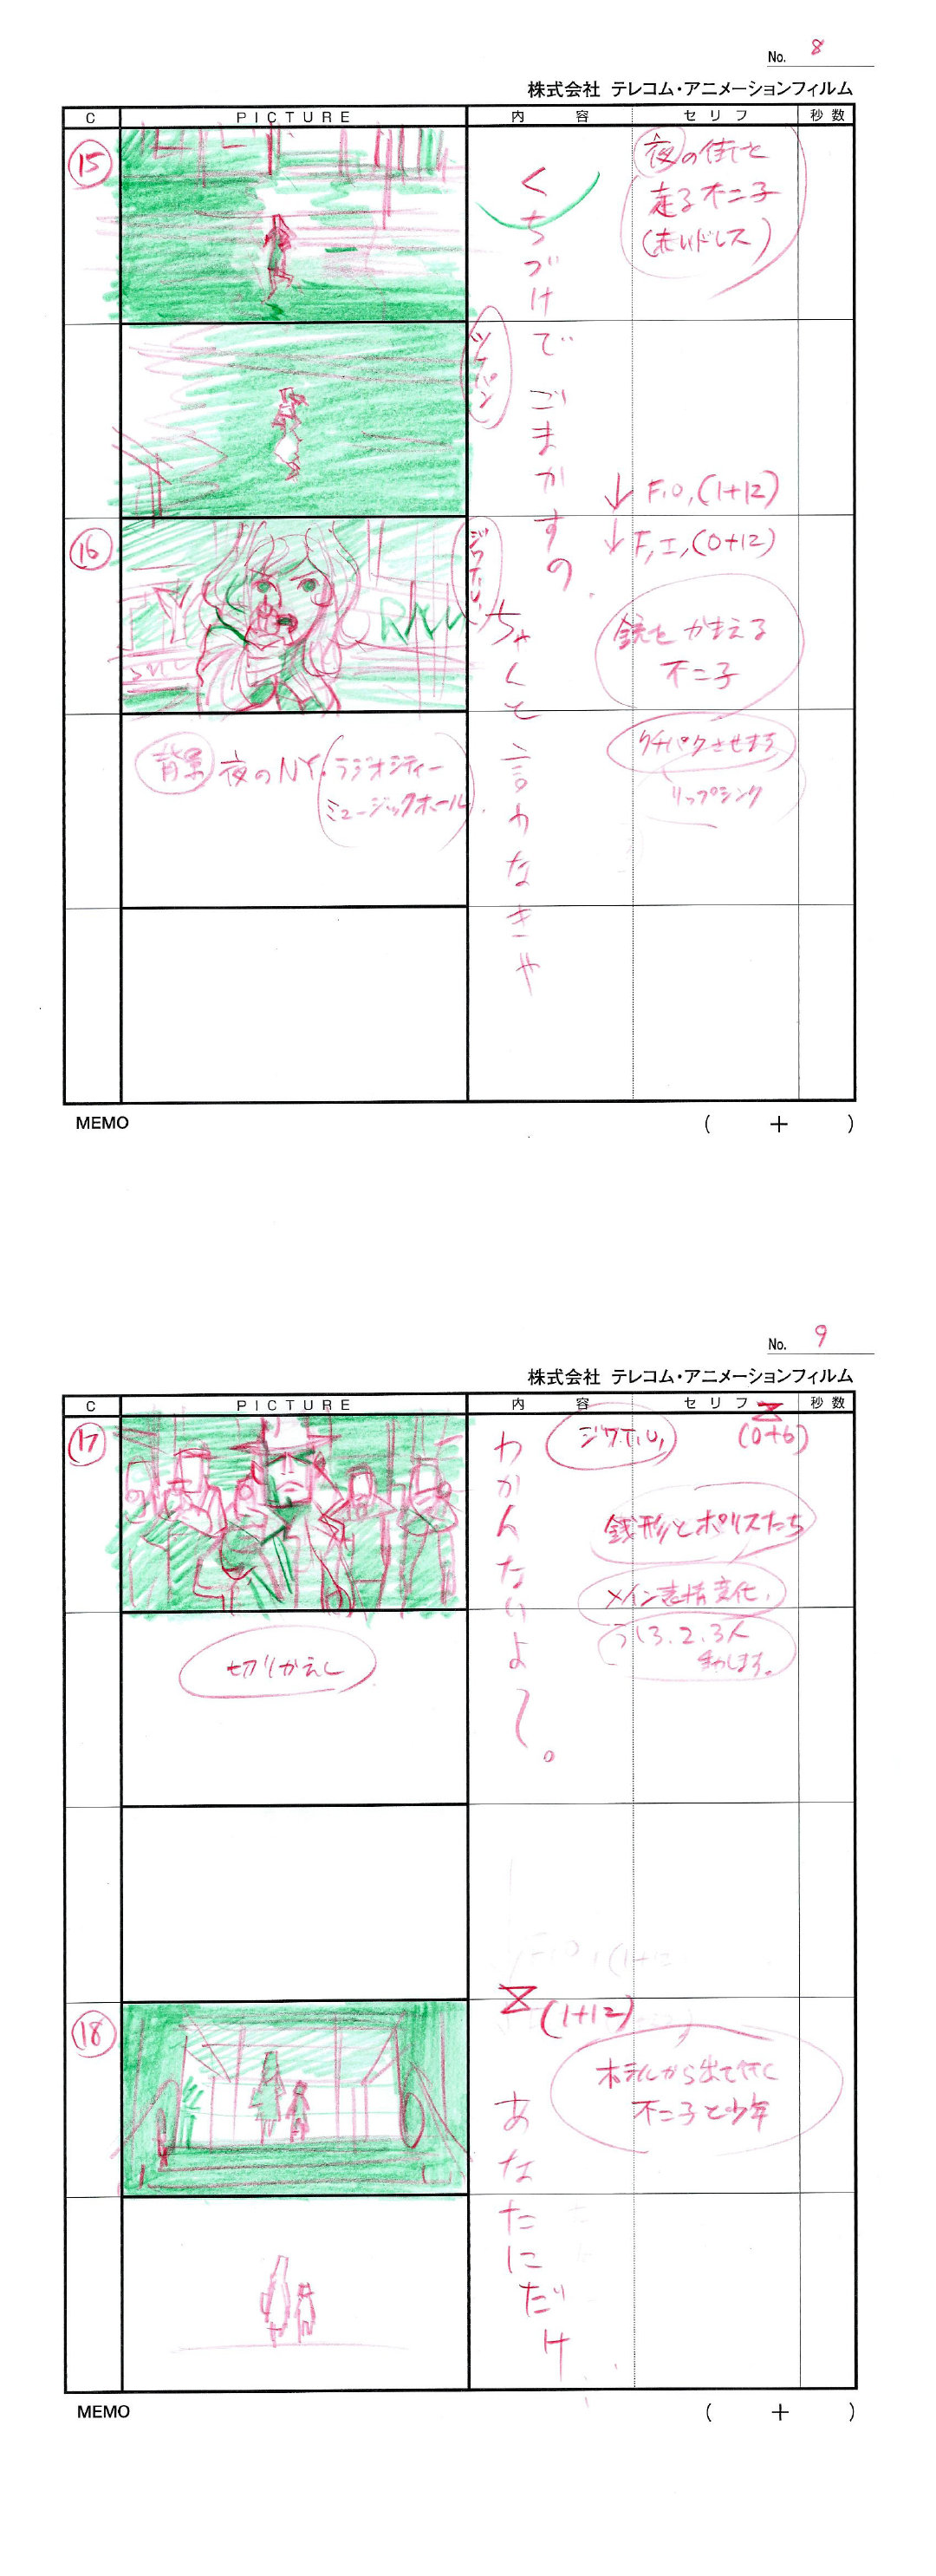 No. 8
株式会社 テレコム・アニメーションフィルム
C PICTURE 内容 セリフ 秒数
15
くちづけで ごまかすの
夜の街を
走る不二子
(赤いドレス)
ツケパン
↓ F.O.(1+12)
16
↓ F.I.(0+12)
ジワT.U.
ちゃんと言わなきゃ
銃をかまえる
不二子
クチパクさせます
リップシンク
背景 夜のNY.(ラジオシティー
ミュージックホール)
MEMO ( + )
No. 9
株式会社 テレコム・アニメーションフィルム
C PICTURE 内容 セリフ 秒数
17
わかんないよ〜。
ジワT.U.
(0+6)
銭形とポリスたち
メイン表情変化.
うしろ.2.3人
動かします。
切りかえし
18
(1+12)
あなたにだけ
ホテルから出て行く
不二子と少年
MEMO ( + )